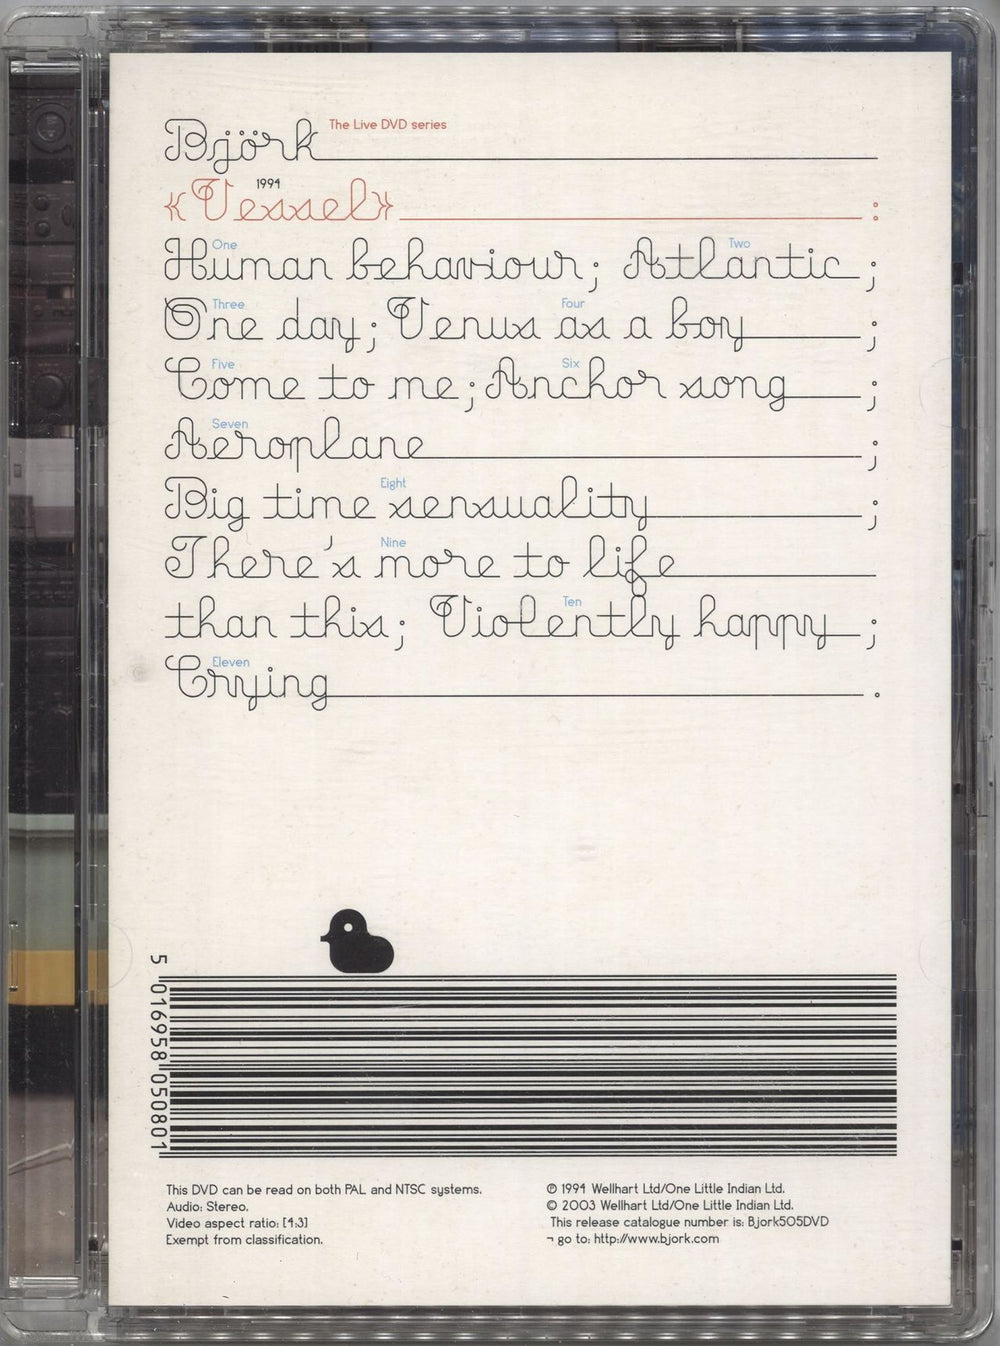 Björk The Live DVD series
«Vessel» 1994 :
One Two
Human behaviour; Atlantic ;
Three Four
One day; Venus as a boy ;
Five Six
Come to me; Anchor song ;
Seven
Aeroplane ;
Eight
Big time sensuality ;
Nine
There's more to life
Ten
than this; Violently happy ;
Eleven
Crying .
5 016958 050801
This DVD can be read on both PAL and NTSC systems.
Audio: Stereo.
Video aspect ratio: [4:3]
Exempt from classification.
℗ 1994 Wellhart Ltd/One Little Indian Ltd.
© 2003 Wellhart Ltd/One Little Indian Ltd.
This release catalogue number is: Bjork505DVD
¬ go to: http://www.bjork.com